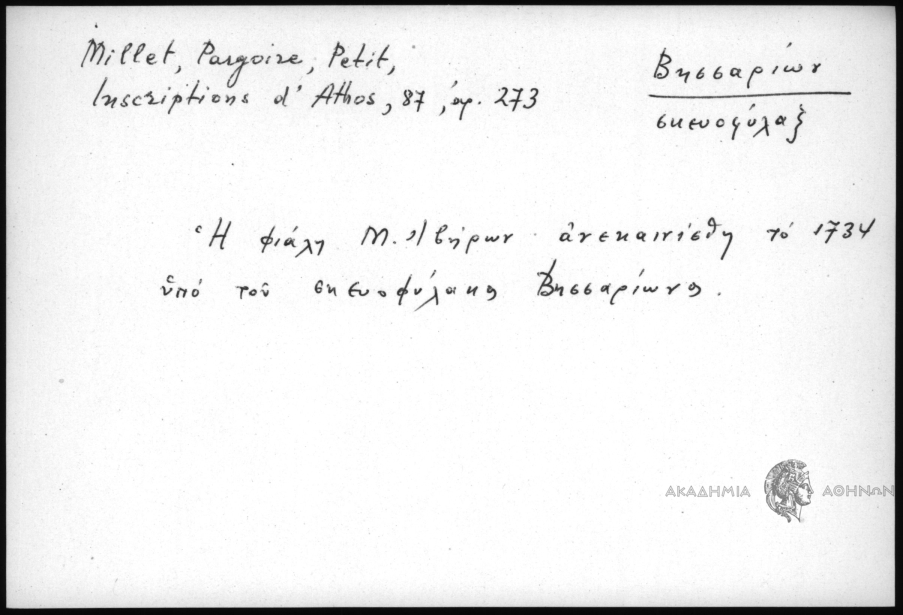 Millet, Pargoire, Petit,
Inscriptions d'Athos, 87, ἀρ. 273
Βησσαρίων
σκευοφύλαξ
Ἡ φιάλη Μ. Ἰβήρων ἀνεκαινίσθη τό 1734
ὑπό τοῦ σκευοφύλακος Βησσαρίωνος.
ΑΚΑΔΗΜΙΑ ΑΘΗΝΩΝ